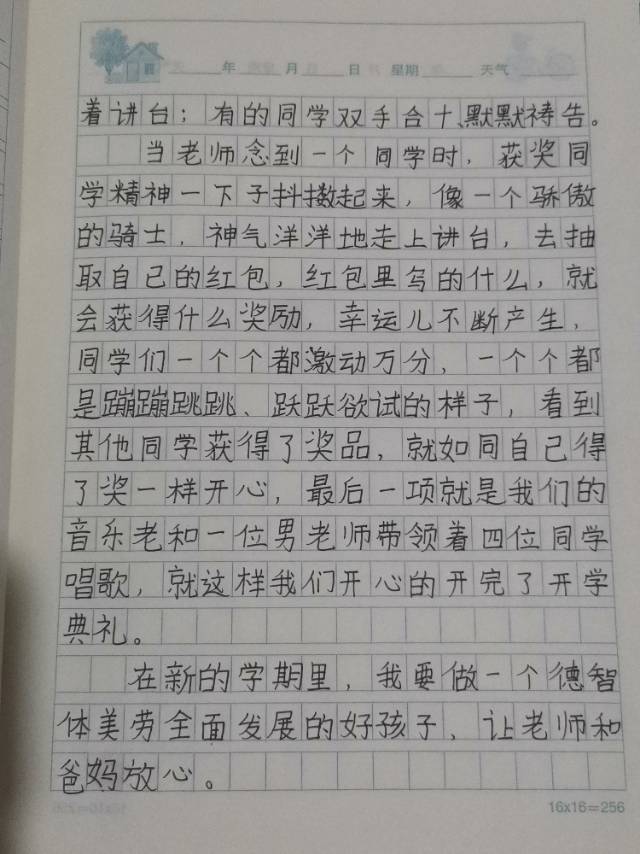 年 月 日 星期 天气
着讲台；有的同学双手合十、默默祷告。
当老师念到一个同学时，获奖同
学精神一下子抖擞起来，像一个骄傲
的骑士，神气洋洋地走上讲台，去抽
取自己的红包，红包里写的什么，就
会获得什么奖励，幸运儿不断产生，
同学们一个个都激动万分，一个个都
是蹦蹦跳跳、跃跃欲试的样子，看到
其他同学获得了奖品，就如同自己得
了奖一样开心，最后一项就是我们的
音乐老和一位男老师带领着四位同学
唱歌，就这样我们开心的开完了开学
典礼。
在新的学期里，我要做一个德智
体美劳全面发展的好孩子，让老师和
爸妈放心。
16x16=256